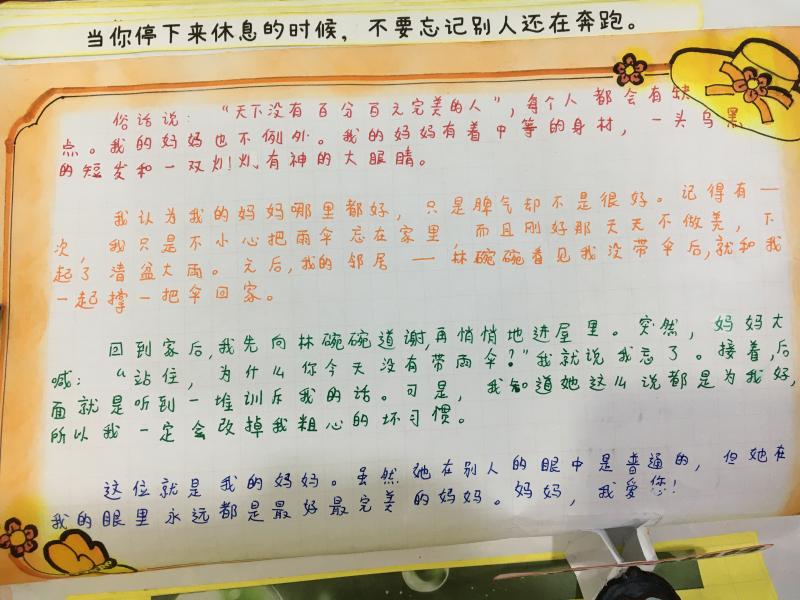 当你停下来休息的时候，不要忘记别人还在奔跑。
俗话说：“天下没有百分百元完美的人”，每个人都会有缺
点。我的妈妈也不例外。我的妈妈有着中等的身材，一头乌黑
的短发和一双灿灿有神的大眼睛。
我认为我的妈妈哪里都好，只是脾气却不是很好。记得有一
次，我只是不小心把雨伞忘在家里，而且刚好那天天不做美，下
起了清盆大雨。元后，我的邻居——林碗碗看见我没带伞后，就和我
一起撑一把伞回家。
回到家后，我先向林碗碗道谢，再悄悄地进屋里。突然，妈妈大
喊：“站住，为什么你今天没有带雨伞？”我就说我忘了。接着，后
面就是听到一堆训斥我的话。可是，我知道她这么说都是为我好，
所以我一定会改掉我粗心的坏习惯。
这位就是我的妈妈。虽然她在别人的眼中是普通的，但她在
我的眼里永远都是最好最完美的妈妈。妈妈，我爱您！